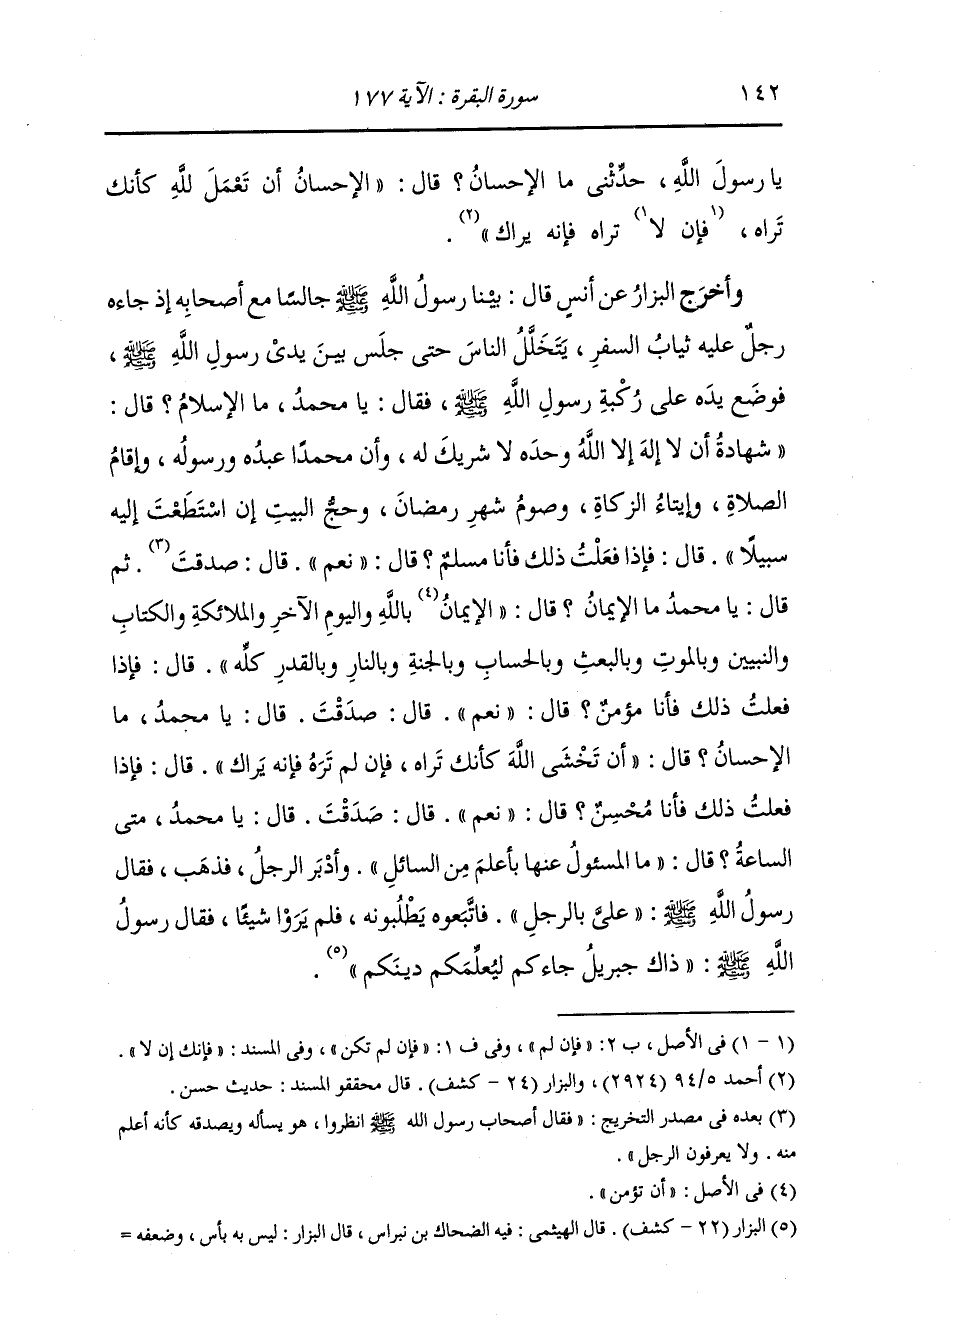 ١٤٢ سورة البقرة : الآية ١٧٧
يا رسولَ اللَّهِ ، حدِّثْنى ما الإحسانُ ؟ قال : « الإحسانُ أن تَعْمَلَ للَّهِ كأنك
تَراه ، (١فإن لا١) تراه فإنه يراك »(٢) .
وأخرَج البزارُ عن أنسٍ قال : بيْنا رسولُ اللَّهِ ﷺ جالسًا مع أصحابِه إذ جاءه
رجلٌ عليه ثيابُ السفرِ ، يَتَخَلَّلُ الناسَ حتى جلَس بينَ يدىْ رسولِ اللَّهِ ﷺ ،
فوضَع يدَه على رُكْبةِ رسولِ اللَّهِ ﷺ ، فقال : يا محمدُ ، ما الإسلامُ ؟ قال :
« شهادةُ أن لا إلهَ إلا اللَّهُ وحدَه لا شريكَ له ، وأن محمدًا عبدُه ورسولُه ، وإقامُ
الصلاةِ ، وإيتاءُ الزكاةِ ، وصومُ شهرِ رمضانَ ، وحجُّ البيتِ إن اسْتَطَعْتَ إليه
سبيلًا » . قال : فإذا فعَلْتُ ذلك فأنا مسلمٌ ؟ قال : « نعم » . قال : صدقتَ(٣) . ثم
قال : يا محمدُ ما الإيمانُ ؟ قال : « الإيمانُ(٤) باللَّهِ واليومِ الآخرِ والملائكةِ والكتابِ
والنبيين وبالموتِ وبالبعثِ وبالحسابِ وبالجنةِ وبالنارِ وبالقدرِ كلِّه » . قال : فإذا
فعلتُ ذلك فأنا مؤمنٌ ؟ قال : « نعم » . قال : صدَقْتَ . قال : يا محمدُ ، ما
الإحسانُ ؟ قال : « أن تَخْشَى اللَّهَ كأنك تَراه ، فإن لم تَرَهُ فإنه يَراك » . قال : فإذا
فعلتُ ذلك فأنا مُحْسِنٌ ؟ قال : « نعم » . قال : صَدَقْتَ . قال : يا محمدُ ، متى
الساعةُ ؟ قال : « ما المسئولُ عنها بأعلمَ مِن السائلِ » . وأدْبَر الرجلُ ، فذهَب ، فقال
رسولُ اللَّهِ ﷺ : « علىَّ بالرجلِ » . فاتَّبَعوه يَطْلُبونه ، فلم يَرَوْا شيئًا ، فقال رسولُ
اللَّهِ ﷺ : « ذاك جبريلُ جاءكم ليُعلِّمَكم دينَكم »(٥) .
(١ - ١) فى الأصل ، ب ٢ : « فإن لم » ، وفى ف ١ : « فإن لم تكن » ، وفى المسند : « فإنك إن لا » .
(٢) أحمد ٩٤/٥ (٢٩٢٤) ، والبزار (٢٤ - كشف) . قال محققو المسند : حديث حسن .
(٣) بعده فى مصدر التخريج : « فقال أصحاب رسول الله ﷺ انظروا ، هو يسأله ويصدقه كأنه أعلم
منه . ولا يعرفون الرجل » .
(٤) فى الأصل : « أن تؤمن » .
(٥) البزار (٢٢ - كشف) . قال الهيثمى : فيه الضحاك بن نبراس ، قال البزار : ليس به بأس ، وضعفه =